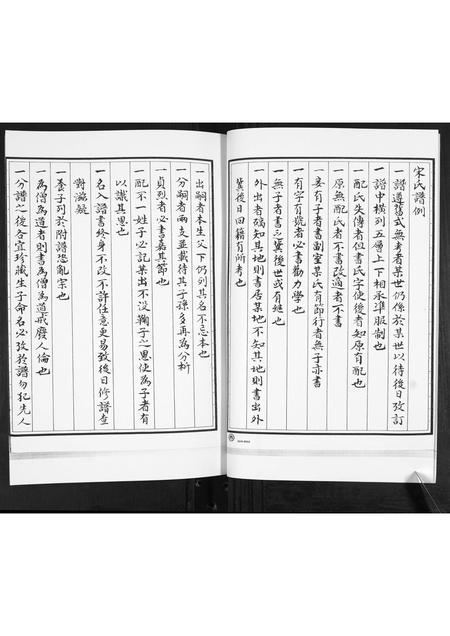 宋氏譜例
一譜遵舊式無考者某世仍係於某世以待後日改訂
一譜中橫列五層上下相承準服制也
一配氏失傳者但書氏字使後者知原有配也
原無配氏者不書改適者不書
一妾有子者書副室某氏有節行者無子亦書
一有字有號者必書勸力學也
一無子者書之冀後世或有繼也
一外出者確知其地則書居某地不知其地則書出外
冀後日回籍有所考也
一出嗣者本生父下仍列其名不忘本也
一分嗣者兩支並載待其子孫多再為分析
一貞烈者必書嘉其節也
一配不一姓子必記某出不沒鞠子之恩使為子者有
以識其恩也
名入譜書終身不改不許任意更易致後日修譜查
對滋疑
一養子列於附譜恐亂宗也
一為僧為道者則書為僧為道戒廢人倫也
一分譜之後各宜珍藏生子命名必攷於譜勿犯先人